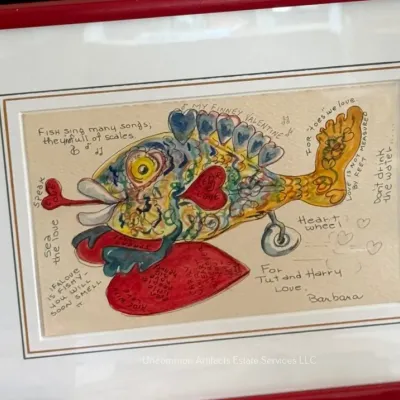 Fish sing many songs;
they'r full of scales.
MY FINNEY VALENTINE
FOR TOES WE LOVE
LOVE IS NOT
BY FEET MEASURED
Don't drink
the water
SPEAK
Sea
the love
IF A LOVE
IS FISHY-
YOU WILL
SOON SMELL
IT
Heart
wheel
For
Tut and Harry
Love,
Barbara
Uncommon Artifacts Estate Services LLC